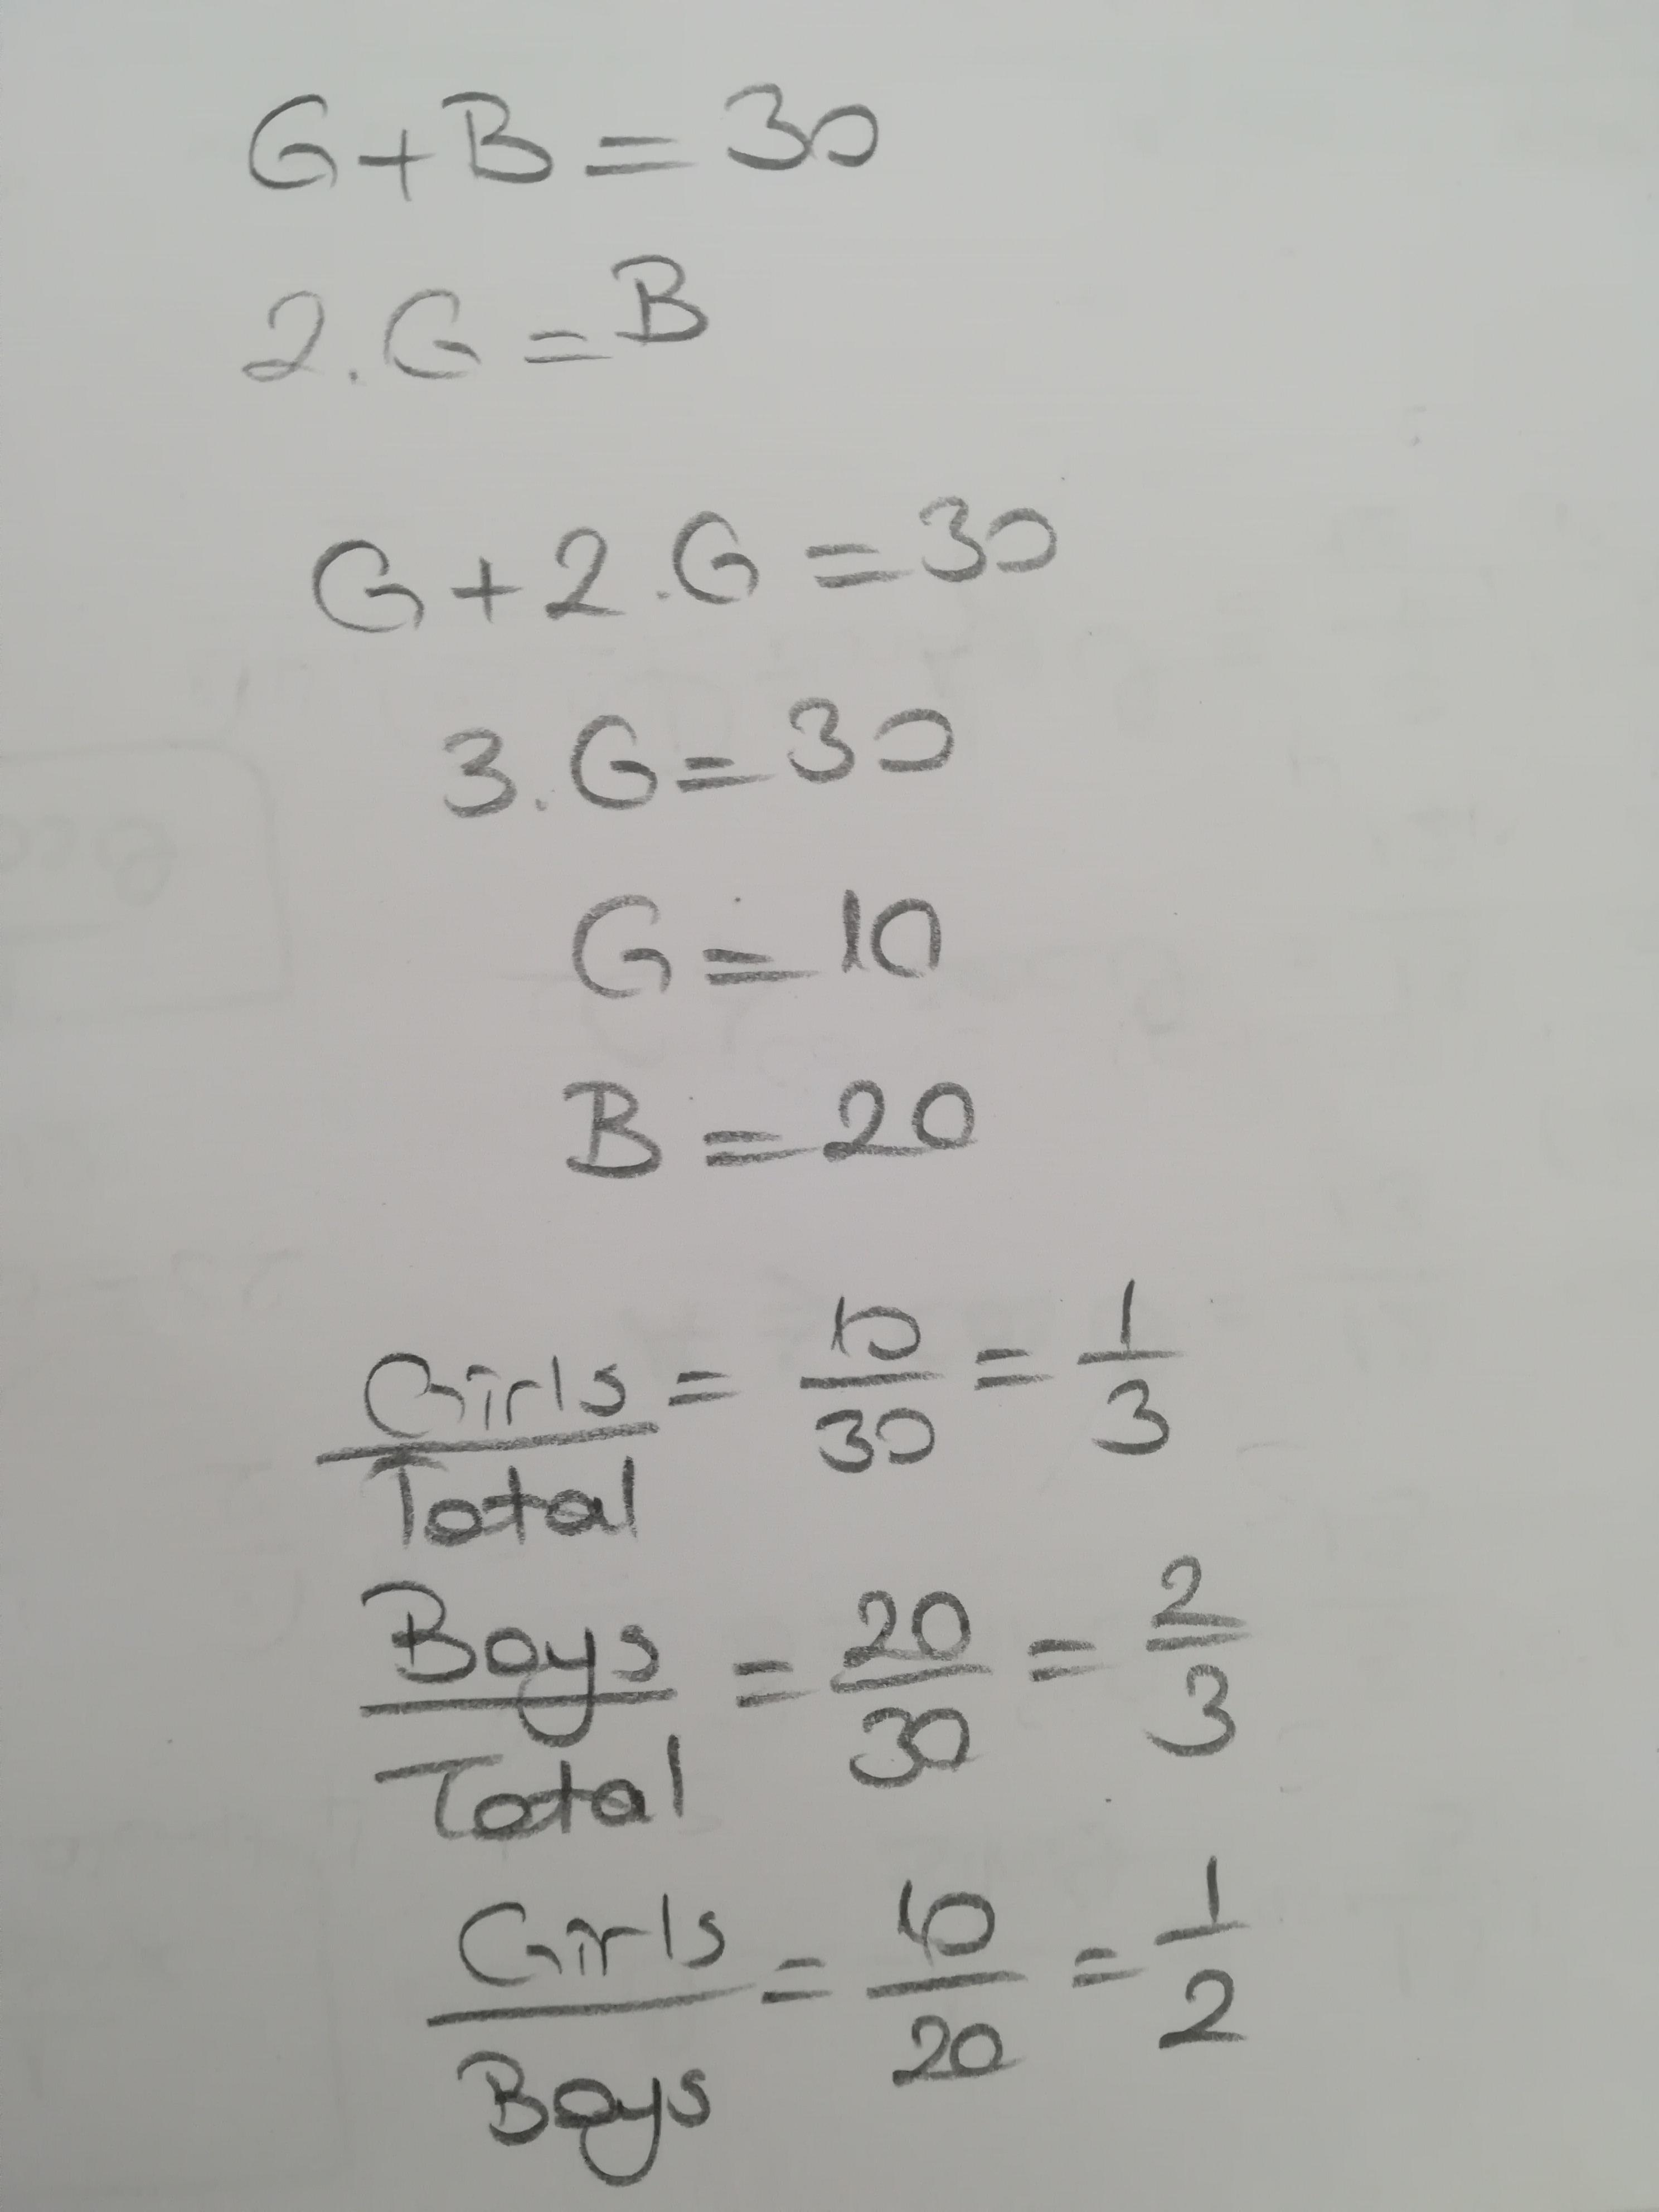 G+B=30
2.G=B
G+2.G=30
3.G=30
G=10
B=20
Girls/Total = 10/30 = 1/3
Boys/Total = 20/30 = 2/3
Girls/Boys = 10/20 = 1/2